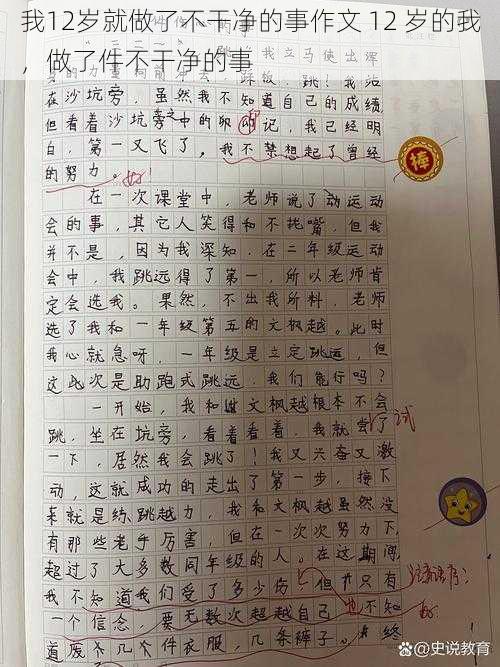 我12岁就做了不干净的事作文 12 岁的我
，做了件不干净的事
在沙坑旁，虽然我不知道自己的成绩
但看着沙坑旁之中的印记，我已经明
白，第一又飞了，我不禁想起了曾经
的努力。好!
棒
在一次课堂中，老师说了动运动
会的事，其它人笑得和不拢嘴，但我
并不是，因为我深知，在二年级运动
会中，我跳远得了第一，所以老师肯
定会选我。果然，不出我所料，老师
选了我和一年级第五的文枫越。此时
我心就急呀，一年级是立定跳远，但
这此次是助跑式跳远，我们能行吗？
一开始，我和文枫越根本不会
跳，坐在坑旁，看着看着，我就尝了
试
一下，居然我会跳了！我又兴奋又激
动，这就成功的走出了第一步，接下
来就是练跳越力，我和文枫越虽然没
有那些老手厉害，但在一次次努力下，
超过了大多数同年级的人。在这期间
我不知道我们受了多少伤，但只有
也不知
一个信念，要无数次超越自己
道废个几个件衣服，几条裤子。终
@史说教育